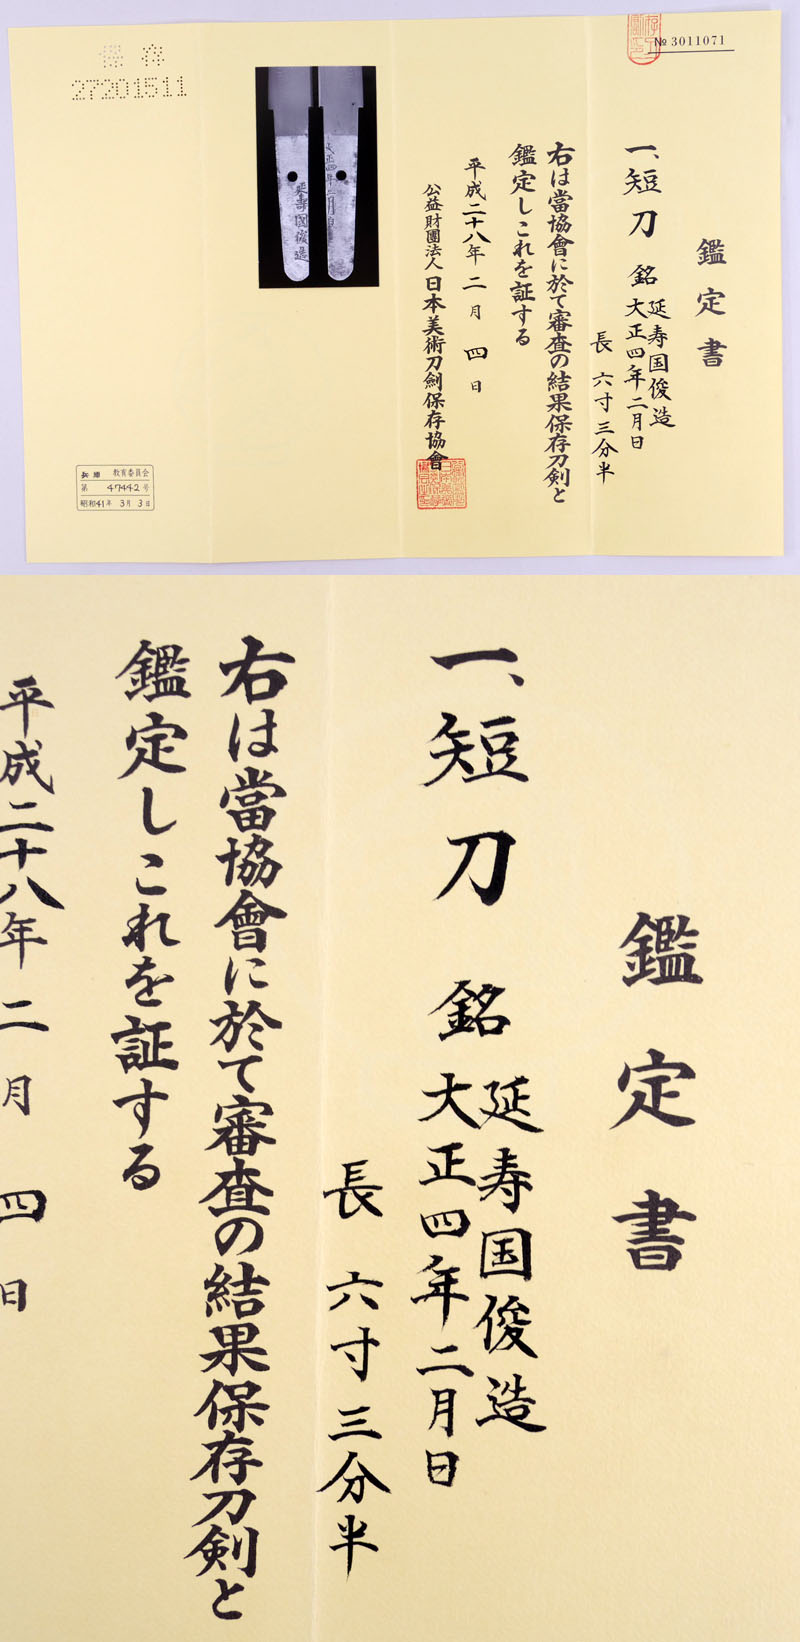 № 3011071
鑑定書
一、短刀 銘 延寿国俊造
大正四年二月日
長 六寸三分半
右は當協會に於て審査の結果保存刀剣と
鑑定しこれを証する
平成二十八年 二月 四日
公益財團法人 日本美術刀劍保存協會
大正四年二月日
延壽國俊造
保存
27201511
兵庫 教育委員会
第 47442 号
昭和41年 3月 3日
鑑定書
一、短刀 銘 延寿国俊造
大正四年二月日
長 六寸三分半
右は當協會に於て審査の結果保存刀剣と
鑑定しこれを証する
平成二十八年 二月 四日